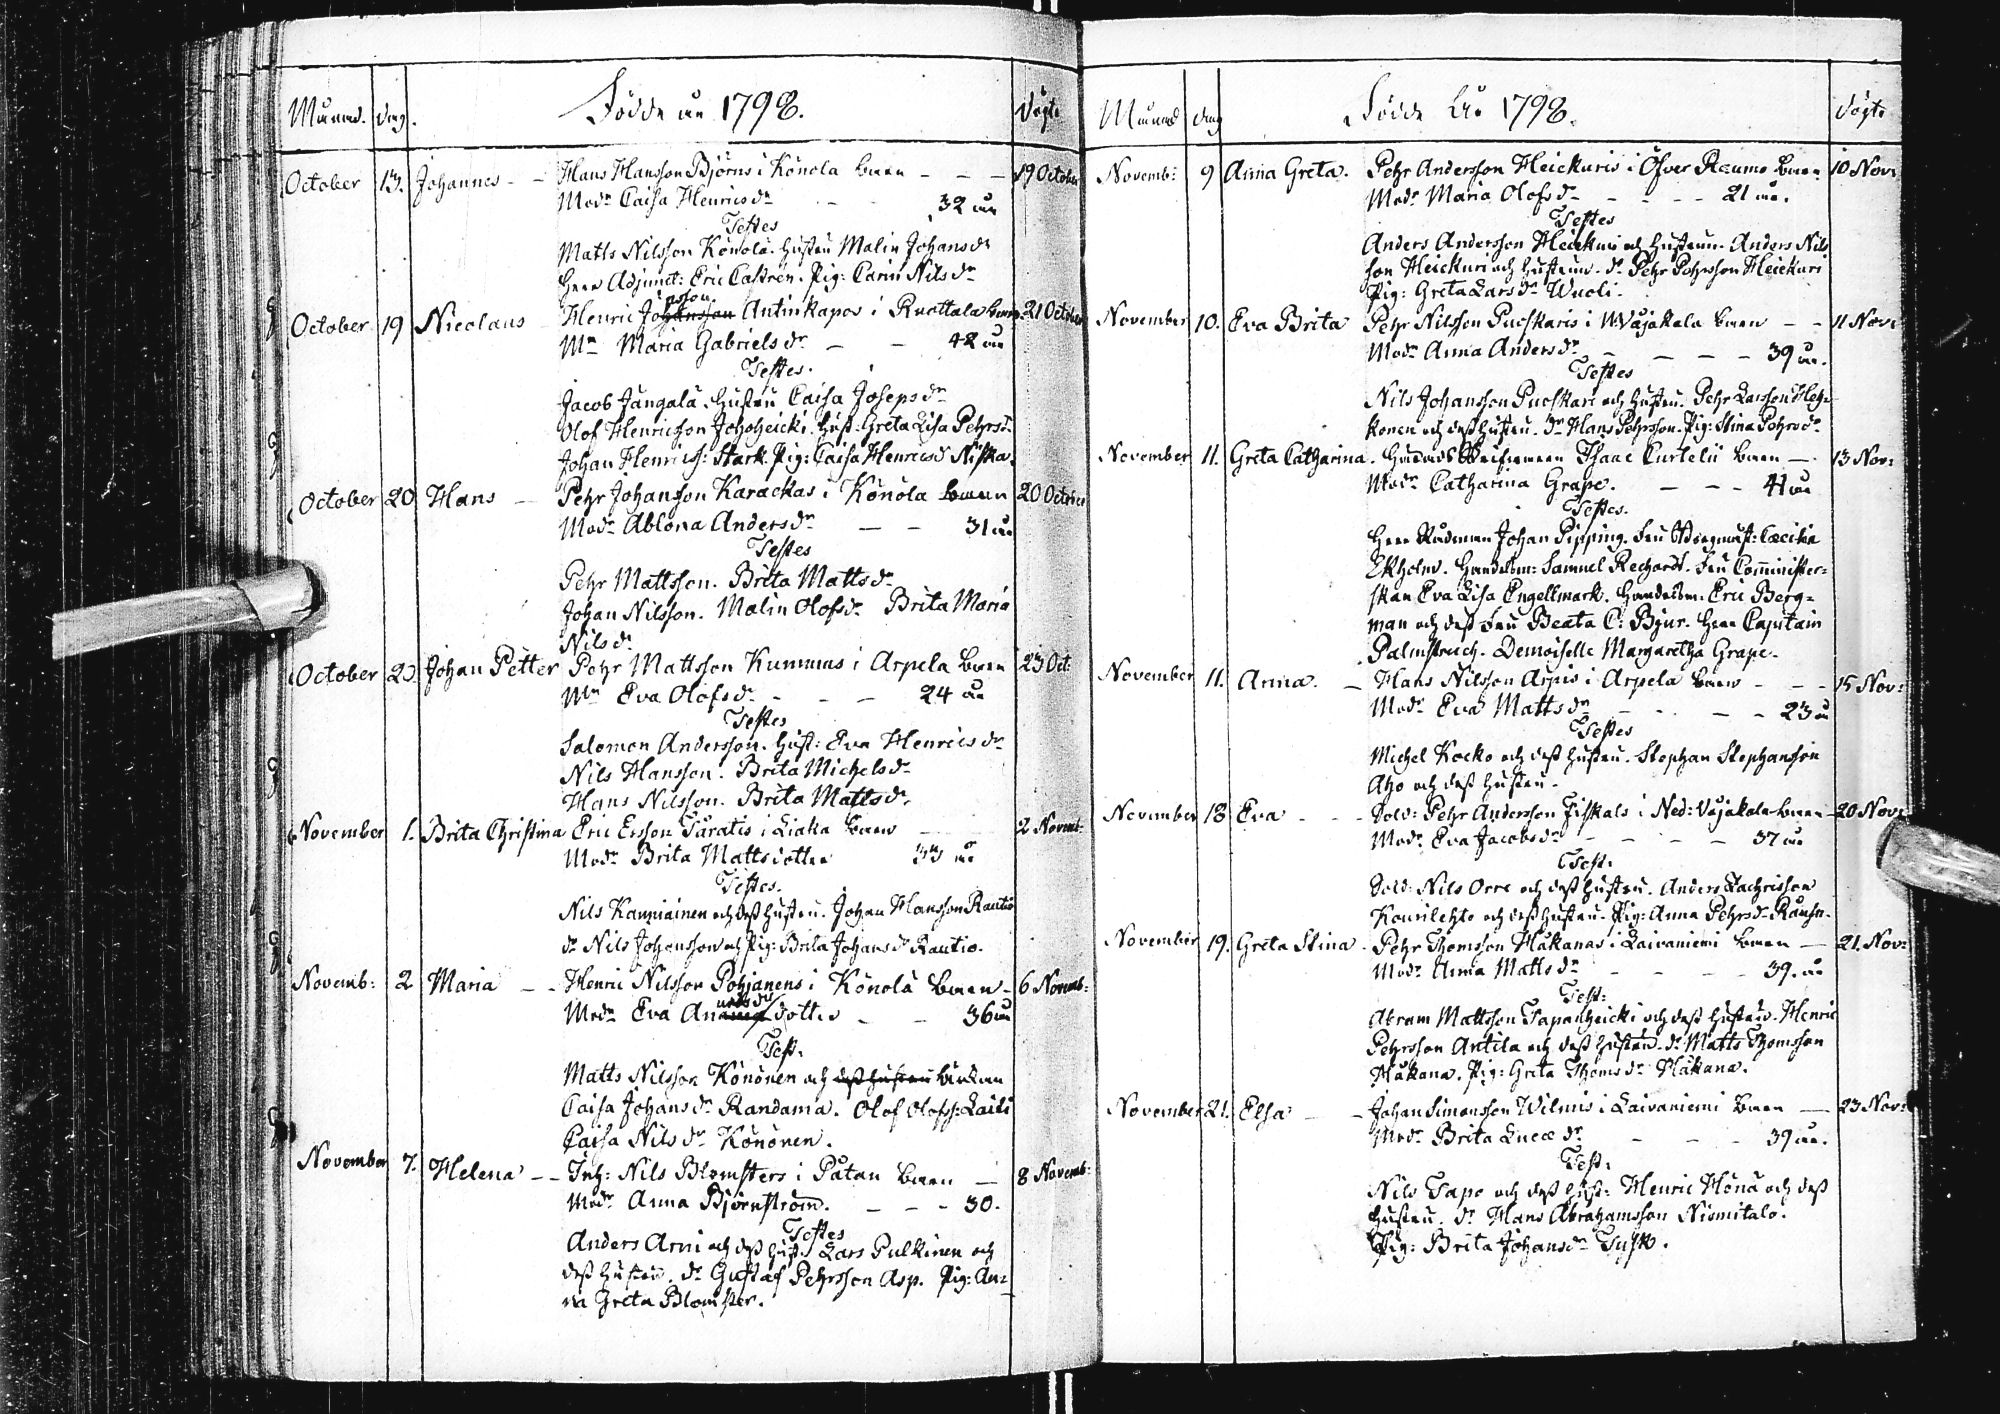 Månad. dag. Födde år 1798. döpt.
October 13. Johannes - - Hans Hansson Björns i Könölä barn - - - 19 October
Modr Caisa Henrics dr - - 32 år
Testes
Matts Nilsson Könölä. hustru Malin Johans dr
Herr Adjunct: Eric Castrén. Pig: Carin Nils dr
October 19 Nicolaus - Henric Johansson Antinkapos i Ruottala barn 21 October
Mr Maria Gabriels dr - - 42 år
Testes.
Jacob Jungala. hustru Caisa Joseps dr
Olof Henricsson Johoheicki. hust: Greta Lisa Pehrs dr
Johan Henrics: Stark. Pig: Caisa Henrics dr Niska.
October 20 Hans - Pehr Johansson Karackas i Könölä barn 20 October
Modr Ablona Anders dr - - 31 år
Testes
Pehr Mattsson. Brita Matts dr
Johan Nilsson. Malin Olofs dr Brita Maria
Nils dr
October 23 Johan Petter Pehr Mattsson Kummus i Arpela barn 23 Oct:
Mr Eva Olofs dr - - - 24 år
Testes
Salomon Andersson. hust: Eva Henrics dr
Nils Hansson. Brita Michels dr
Hans Nilsson. Brita Matts dr.
November 1. Brita Christina Eric Ersson Täratis i Liaka barn 2 Novemb:
Modr Brita Matts dotter 33 år
Testes.
Nils Kanniainen och dess hustru. Johan Hansson Rautio
dr Nils Johansson och Pig: Brita Johans dr Rautio.
Novemb: 2 Maria - - Henric Nilsson Pohjanens i Könölä barn - 6 Novemb:
Modr Eva dotter - - 36 år
Test:
Matts Nilsson Könönen och dess hustru
Caisa Johans dr Randama. Olof Olofss: Laiti
Caisa Nils dr Könönen.
November 7. Helena - - Inh: Nils Blomsters i Påtan barn - 8 Novemb:
Modr Anna Björnström. - - - 30.
Testes
Anders Arni och dess hust: Lars Pulkinen och
dess hustru. dr Gustaf Pehrsson Asp. Pig: An=
na Greta Blomster.
Månad dag Födde År 1798. döpte
Novemb: 9 Anna Greta. Pehr Andersson Heickuris i Öfver Raumo barn 10 Nov:
Modr Maria Olofs dr - - - - 21 år.
Testes
Anders Andersson Heickuri och hustrun. Anders Nils
son Heickuri och hustrun. dr Pehr Pehrsson Heickuri
Pig: Greta Lars dr Wuoli.
November 10. Eva Brita Pehr Nilsson Puoskaris i N. Väjakala barn - - 11 Nov:
Modr Anna Anders dr - - - - 39 år.
Testes
Nils Johansson Puoskari och hustru. Pehr Larsson Hey=
konen och dess hustru. dr Hans Pehrsson. Pig: Stina Pehrs dr
November 11. Greta Catharina. Isaac Curtelii barn - 13 Nov:
Modr Catharina Grape. - - - 41 år
Testes.
Herr Rådman Johan Pipping. Fru Cæcilia
Ekholm. Handelsm: Samuel Rechardt. Fru Comminister=
skan Eva Lisa Engellmark. Handelsm: Eric Berg=
man och dess Fru Beata C: Bjur. Herr Capitain
Palmstruch. Demoiselle Margaretha Grape.
November 11. Anna. - Hans Nilsson Arpis i Arpela barn - - - 15 Nov:
Modr Eva Matts dr - - - - 23 år
Testes
Michel Kocko och dess hustru. Stephan Stephansson
Aho och dess hustru.
November 18 Eva - - Sold: Pehr Andersson Fiskals i Ned: Väjakala barn 20 Nov:
Modr Eva Jacobs dr - - - - 37 år
Test:
Sold: Nils Orre och dess hustru. Anders Zachrisson
Kourilehto och dess hustru. Pig: Anna Pehrs dr
November 19. Greta Stina. Pehr Thomsson Häkanas i Laivaniemi barn - 21. Nov:
Modr Anna Matts dr - - - - 39. år
Test:
Abram Mattsson Tapanheicki och dess hustru. Henric
Pehrsson Antila och dess hustru. dr Matts Thomsson
Häkana. Pig: Greta Thoms dr Häkana.
November 21. Elsa - - Johan Simonsson Wilmis i Laivaniemi barn - 23 Nov:
Modr Brita Lucæ dr - - - 39 år.
Test:
Nils Tapo och dess hust: Henric Hönä och dess
hustru. dr Hans Abrahamsson Niemitalo.
Pig: Brita Johans dr Tusk.